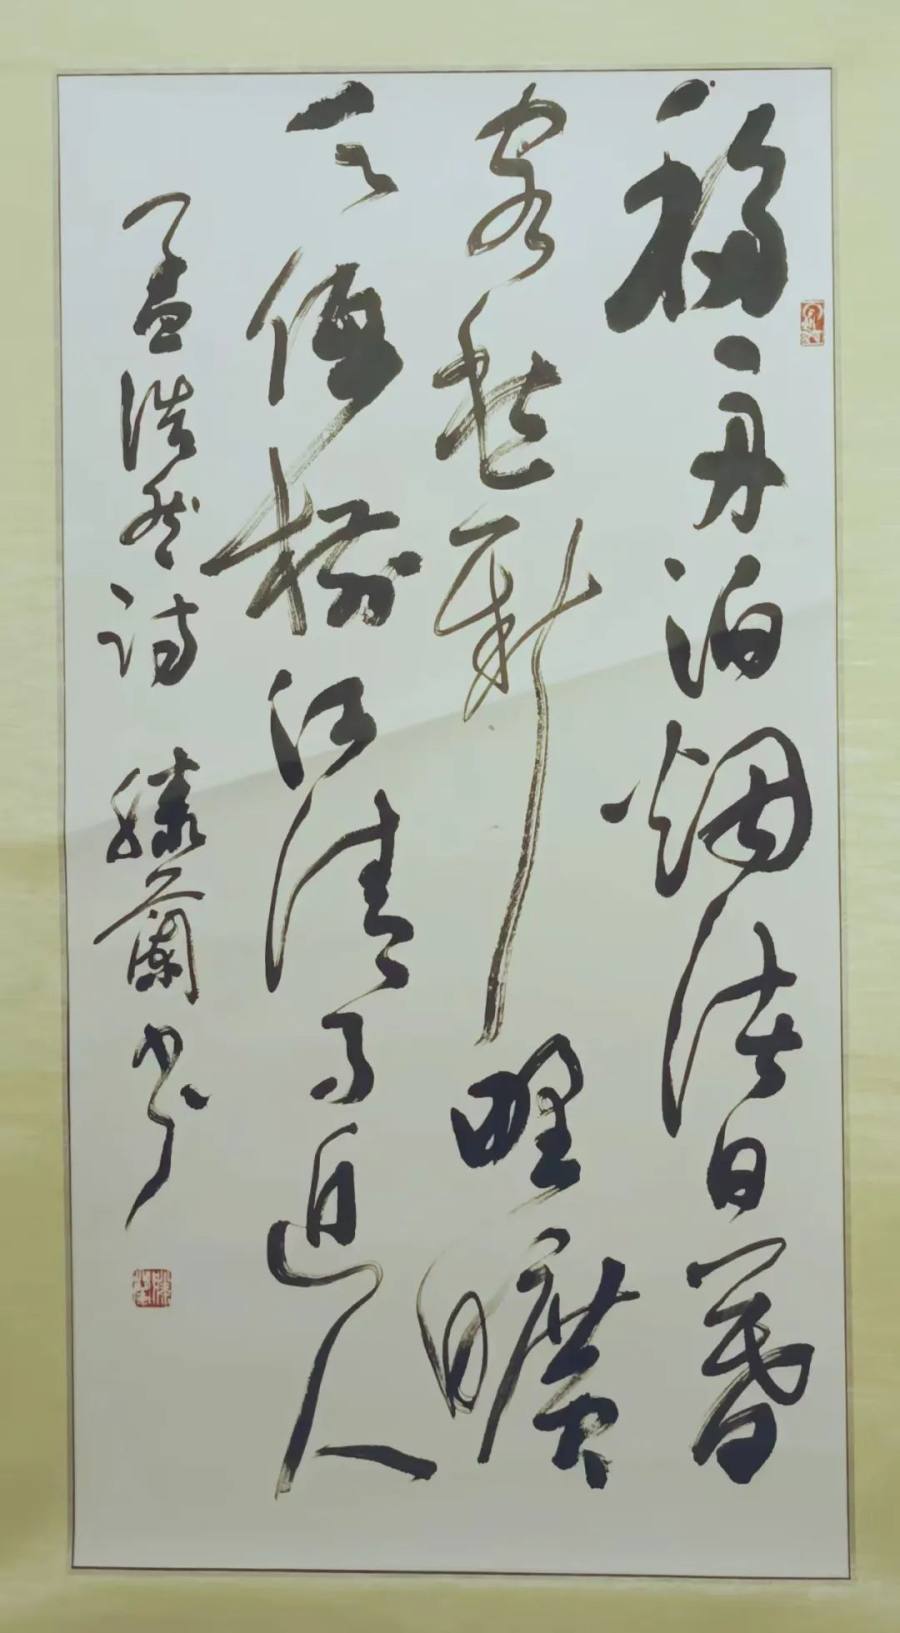 移舟泊烟渚日暮
客愁新野旷
天低树江清月近人
孟浩然诗 滕兰书